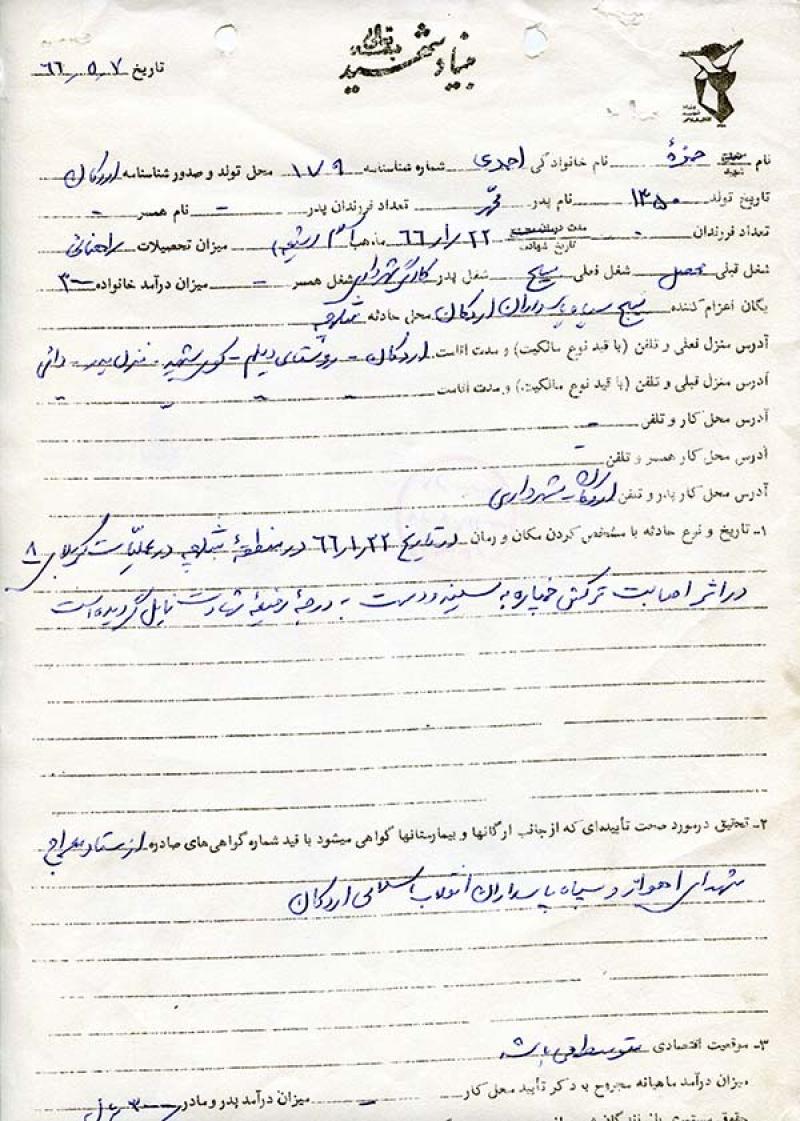 بسمه تعالی
بنیاد شهید
تاریخ ۶۶/۵/۷
نام شهید حمزهٔ نام خانوادگی احمدی شماره شناسنامه ۱۱۷۹ محل تولد و صدور شناسنامه اردکان
تاریخ تولد ۱۳۵۰ نام پدر محمد تعداد فرزندان پدر - نام همسر -
تعداد فرزندان - تاریخ شهادت ۶۶/۱/۲۲ مذهب اسلام (شیعه) میزان تحصیلات راهنمائی
شغل قبلی محصل شغل فعلی بسیج شغل پدر کارگر شهرداری شغل همسر - میزان درآمد خانواده
یگان اعزام کننده بسیج سپاه پاسداران اردکان محل حادثه شلمچه
آدرس منزل فعلی و تلفن (با قید نوع مالکیت) و مدت اقامت اردکان - روستای دیلم - کوی شهید - منزل پدر - دائمی
آدرس منزل قبلی و تلفن (با قید نوع مالکیت) و مدت اقامت - - - -
آدرس محل کار و تلفن -
آدرس محل کار همسر و تلفن -
آدرس محل کار پدر و تلفن اردکان - شهرداری
۱- تاریخ و نوع حادثه با مشخص کردن مکان و زمان در تاریخ ۶۶/۱/۲۲ در منطقهٔ شلمچه در عملیات کربلای ۸
در اثر اصابت ترکش خمپاره به سینه و دست به درجهٔ رفیعهٔ شهادت نایل گردیده است
۲- تحقیق درمورد صحت تأییده‌ای که از جانب ارگانها و بیمارستانها گواهی میشود با قید شماره گواهی‌های صادره از ستاد معراج
شهدای اهواز و سپاه پاسداران انقلاب اسلامی اردکان
۳- موقعیت اقتصادی متوسط می باشد
میزان درآمد ماهیانه مجروح به ذکر تأیید محل کار - میزان درآمد پدر و مادر